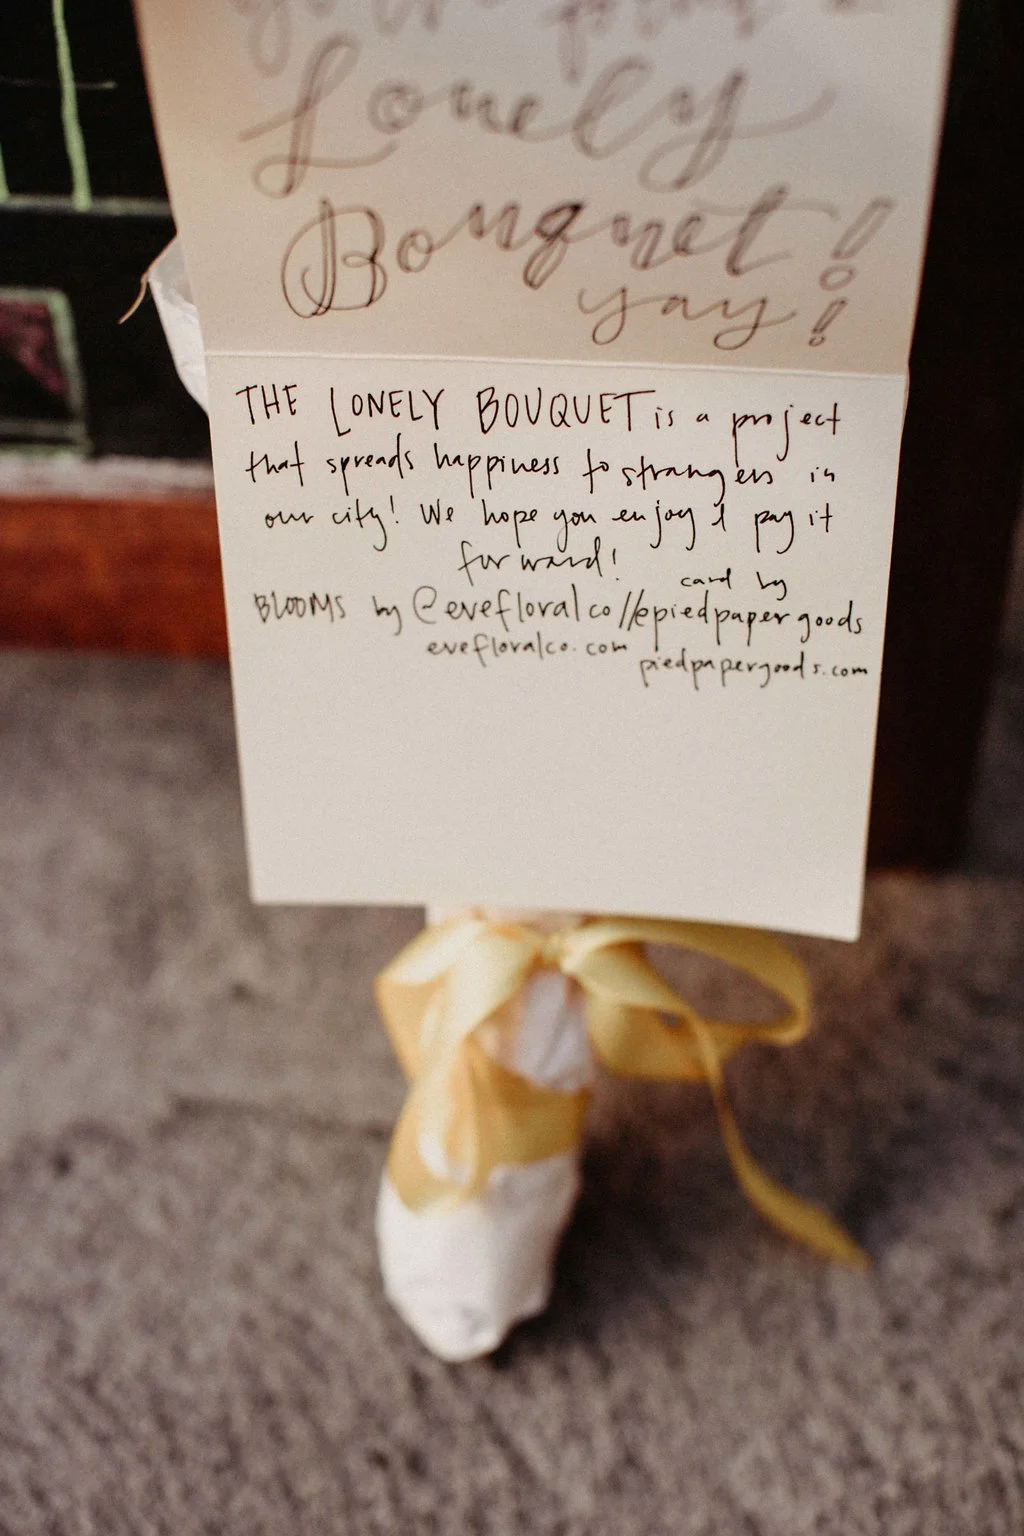 Lonely
Bouquet!
yay!
THE LONELY BOUQUET is a project
that spreads happiness to strangers in
our city! We hope you enjoy & pay it
forward!
card by
BLOOMS by @evefloralco//@piedpapergoods
evefloralco.com piedpapergoods.com